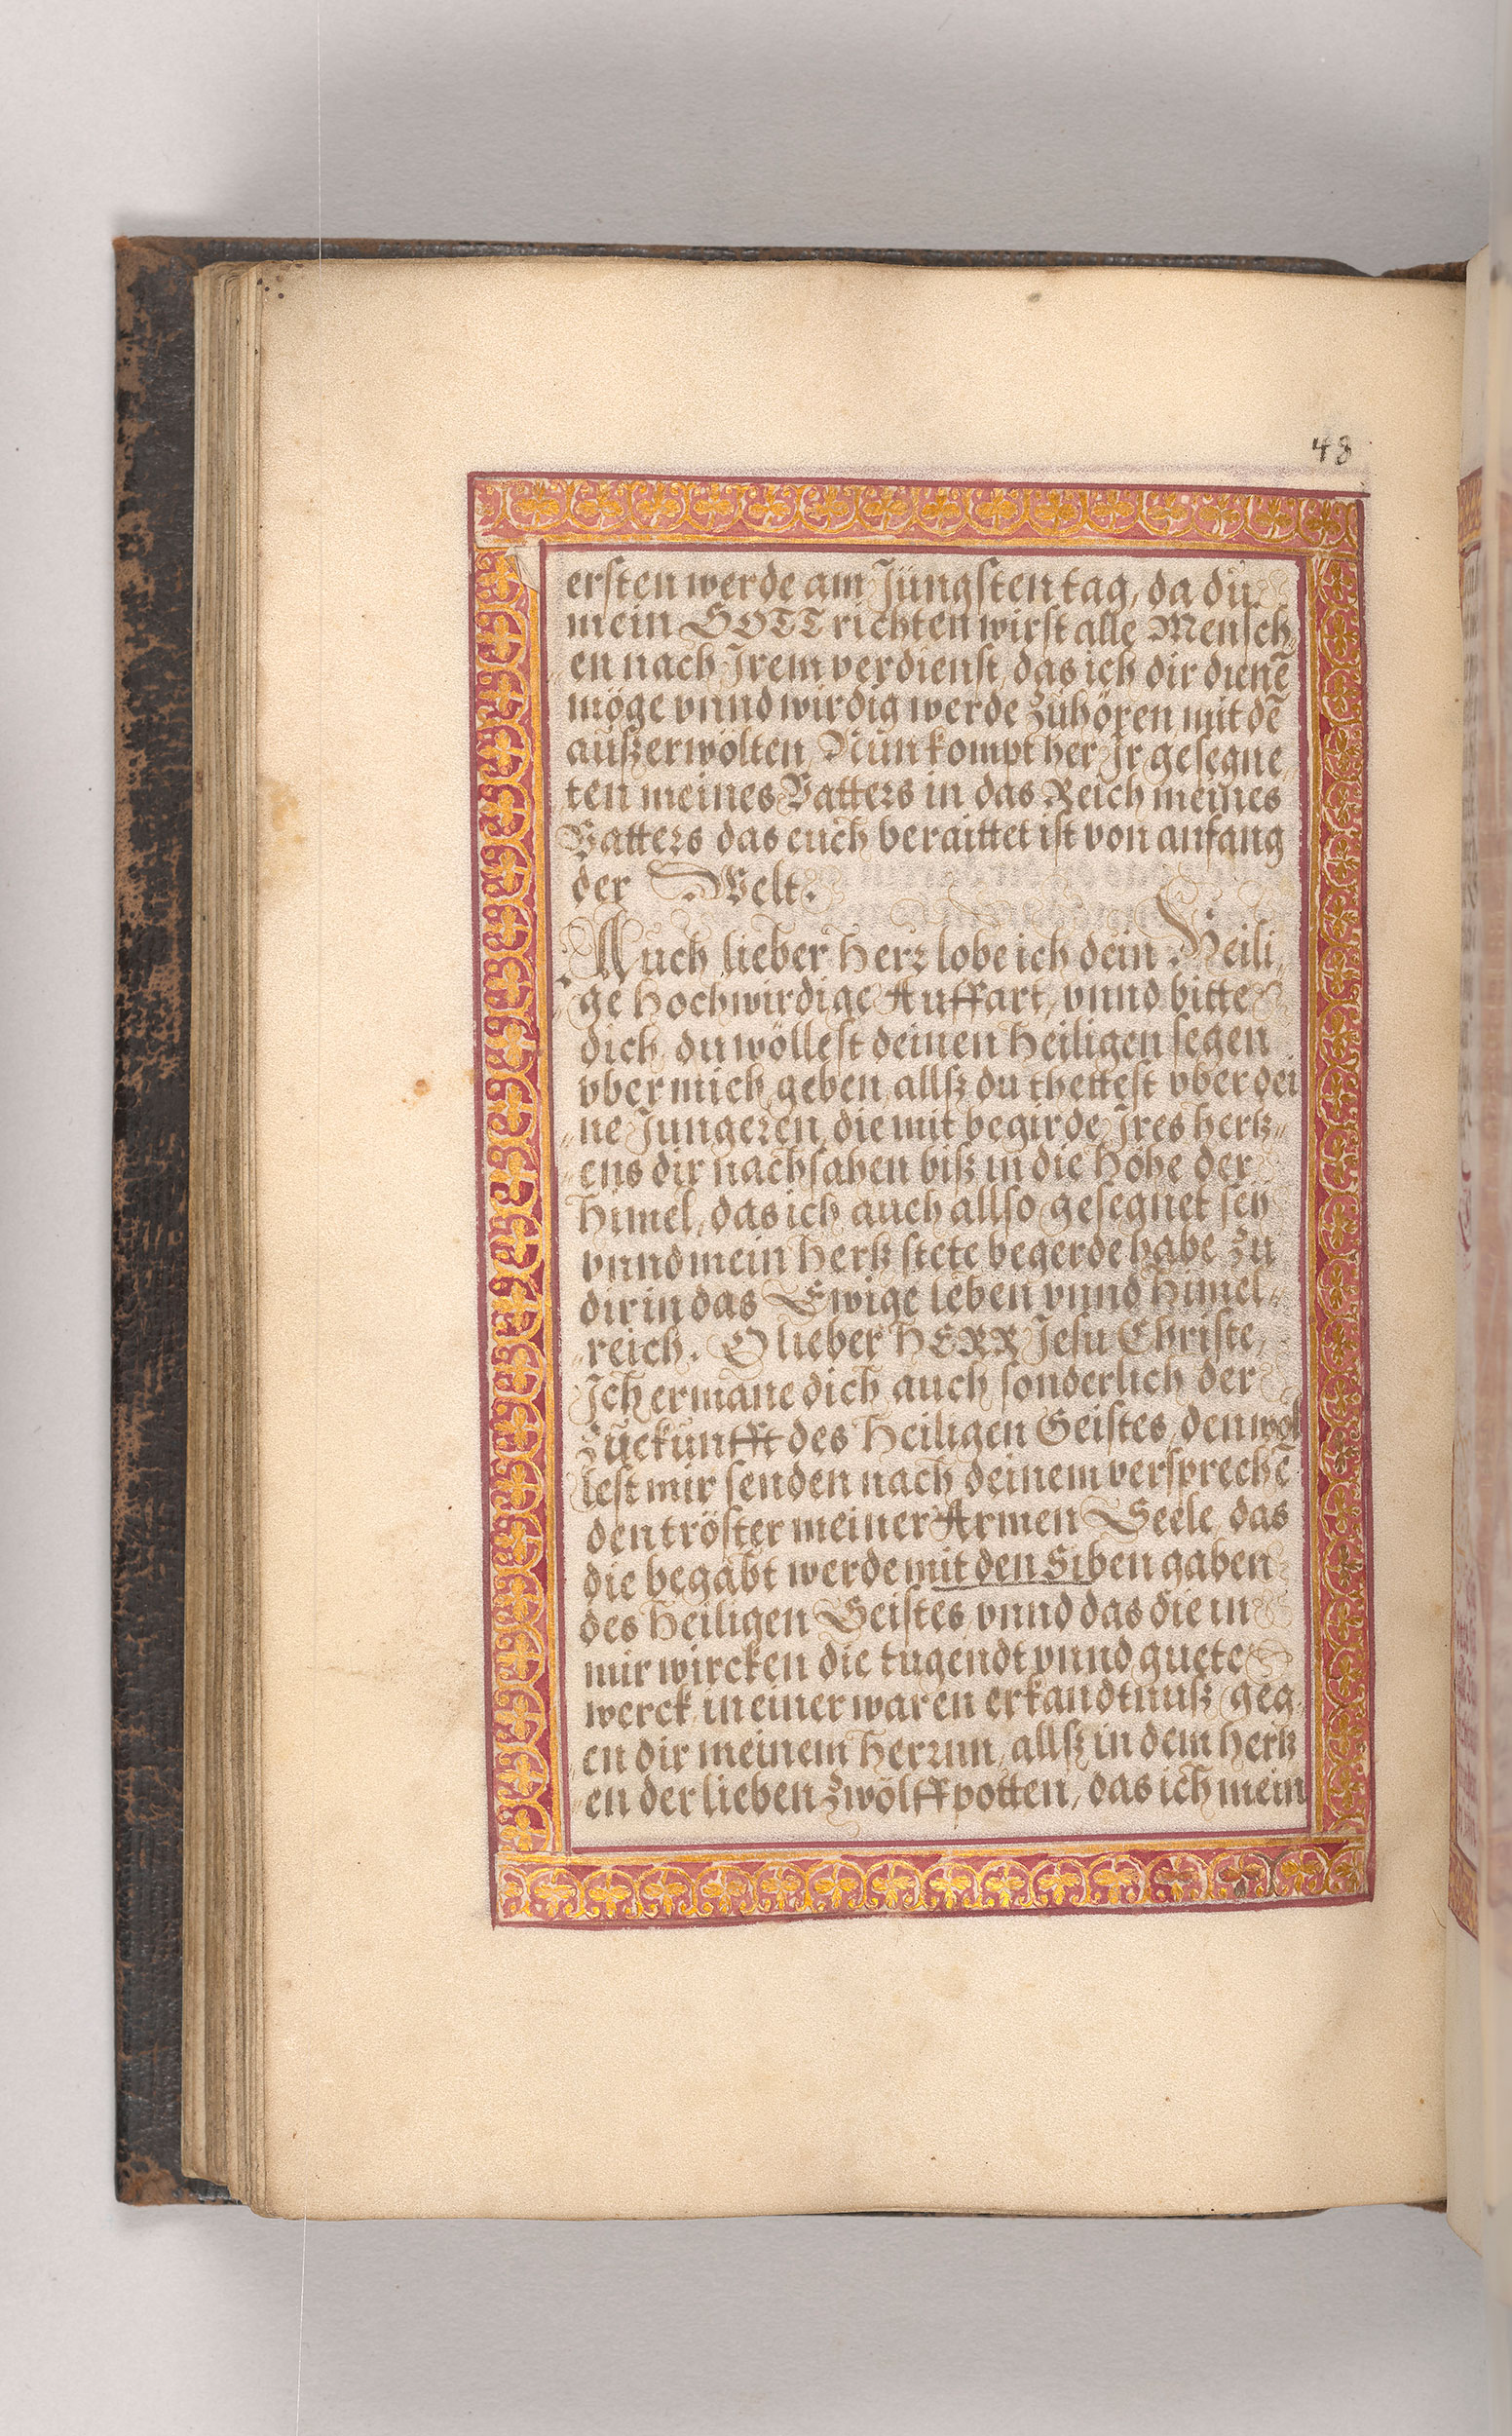 48
ersten werde am Jüngsten tag, da du
mein GOTT richten wirst alle Mensch,
en nach Irem verdienst, das ich dir dienē
möge vnnd wirdig werde Zuhören mit dē
außerwölten, Nun kompt her Ir gesegne,
ten meines Vatters in das Reich meines
Vatters das euch beraittet ist von anfang
der Welt.
Auch lieber Herr lobe ich dein Heili,
ge Hochwirdige Auffart, vnnd bitte
dich, du wöllest deinen Heiligen segen
vber mich geben, allß du thettest vber dei
ne Jungeren, die mit begirde Ires hertz„
ens dir nachsahen biß in die Höhe der
Himel, das ich auch allso gesegnet sey
vnnd mein Hertz stete begerde habe Zu
dir in das Ewige leben vnnd Himel„
reich. O lieber HERR Jesu Christe,
Ich ermane dich auch sonderlich der
Zuekunfft des Heiligen Geistes, den wöl
lest mir senden nach deinem versprechē
den tröster meiner Armen Seele, das
die begabt werde mit den Siben gaben
des Heiligen Geistes, vnnd das die in
mir wircken die tugendt vnnd guete
werck, in einer waren erkandtnuß geg,
en dir meinem Herrnn, allß in dem Hertz
en der lieben Zwölffpotten, das ich mein